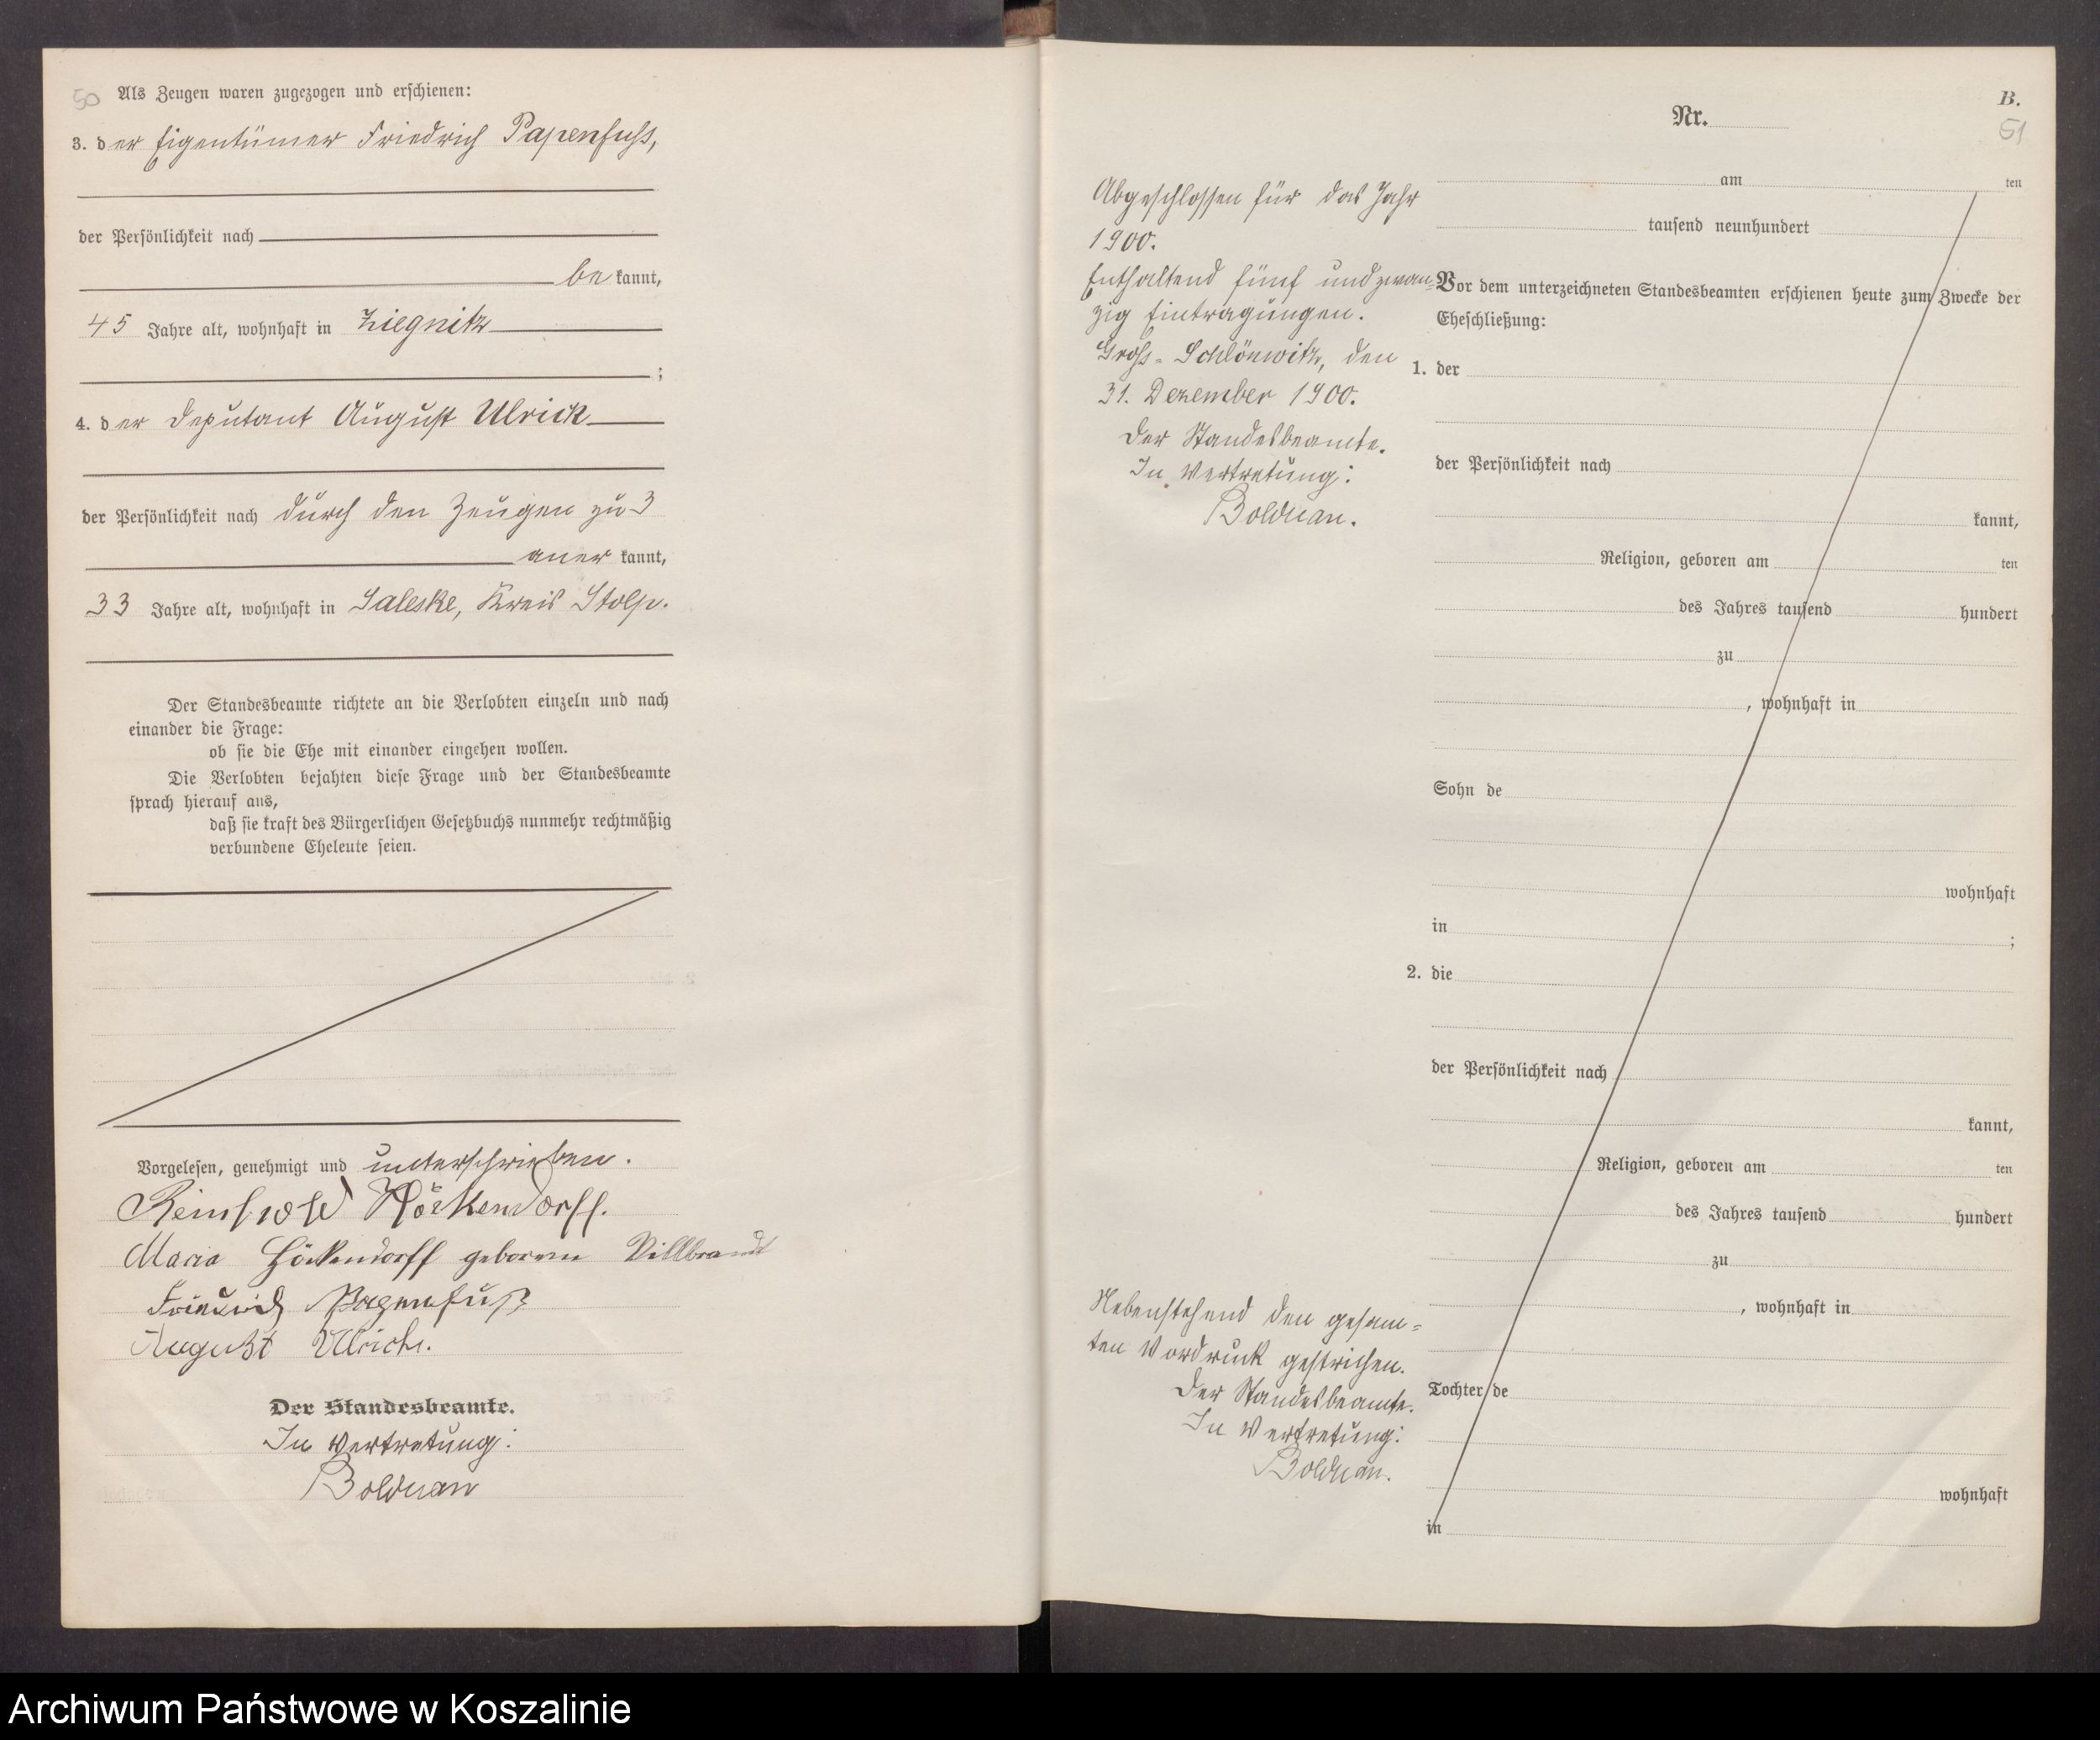 50 Als Zeugen waren zugezogen und erschienen:
3. der Eigentümer Friedrich Papenfuß,
der Persönlichkeit nach
be kannt,
45 Jahre alt, wohnhaft in Ziegnitz
;
4. der Deputant August Ulrick
der Persönlichkeit nach durch den Zeugen zu 3
aner kannt,
33 Jahre alt, wohnhaft in Saleske, Kreis Stolp.
Der Standesbeamte richtete an die Verlobten einzeln und nach
einander die Frage:
ob sie die Ehe mit einander eingehen wollen.
Die Verlobten bejahten diese Frage und der Standesbeamte
sprach hierauf aus,
daß sie kraft des Bürgerlichen Gesetzbuchs nunmehr rechtmäßig
verbundene Eheleute seien.
Vorgelesen, genehmigt und unterschrieben.
Reinhold Höckendorff.
Maria Höckendorff geborene Villbrandt
Friedrich Papenfuß
August Ulrich.
Der Standesbeamte.
In Vertretung:
Bolduan
B.
51
Nr.
Abgeschlossen für das Jahr
1900.
Enthaltend fünf und zwan-
zig Eintragungen.
Groß-Schlönwitz, den
31. Dezember 1900.
Der Standesbeamte.
In Vertretung:
Bolduan.
am ten
tausend neunhundert
Vor dem unterzeichneten Standesbeamten erschienen heute zum Zwecke der
Eheschließung:
1. der
der Persönlichkeit nach
kannt,
Religion, geboren am ten
des Jahres tausend hundert
zu
, wohnhaft in
Sohn de
wohnhaft
in ;
2. die
der Persönlichkeit nach
kannt,
Religion, geboren am ten
des Jahres tausend hundert
zu
, wohnhaft in
Tochter de
wohnhaft
in
Nebenstehend den gesam-
ten Vordruck gestrichen.
Der Standesbeamte.
In Vertretung:
Bolduan.
Archiwum Państwowe w Koszalinie